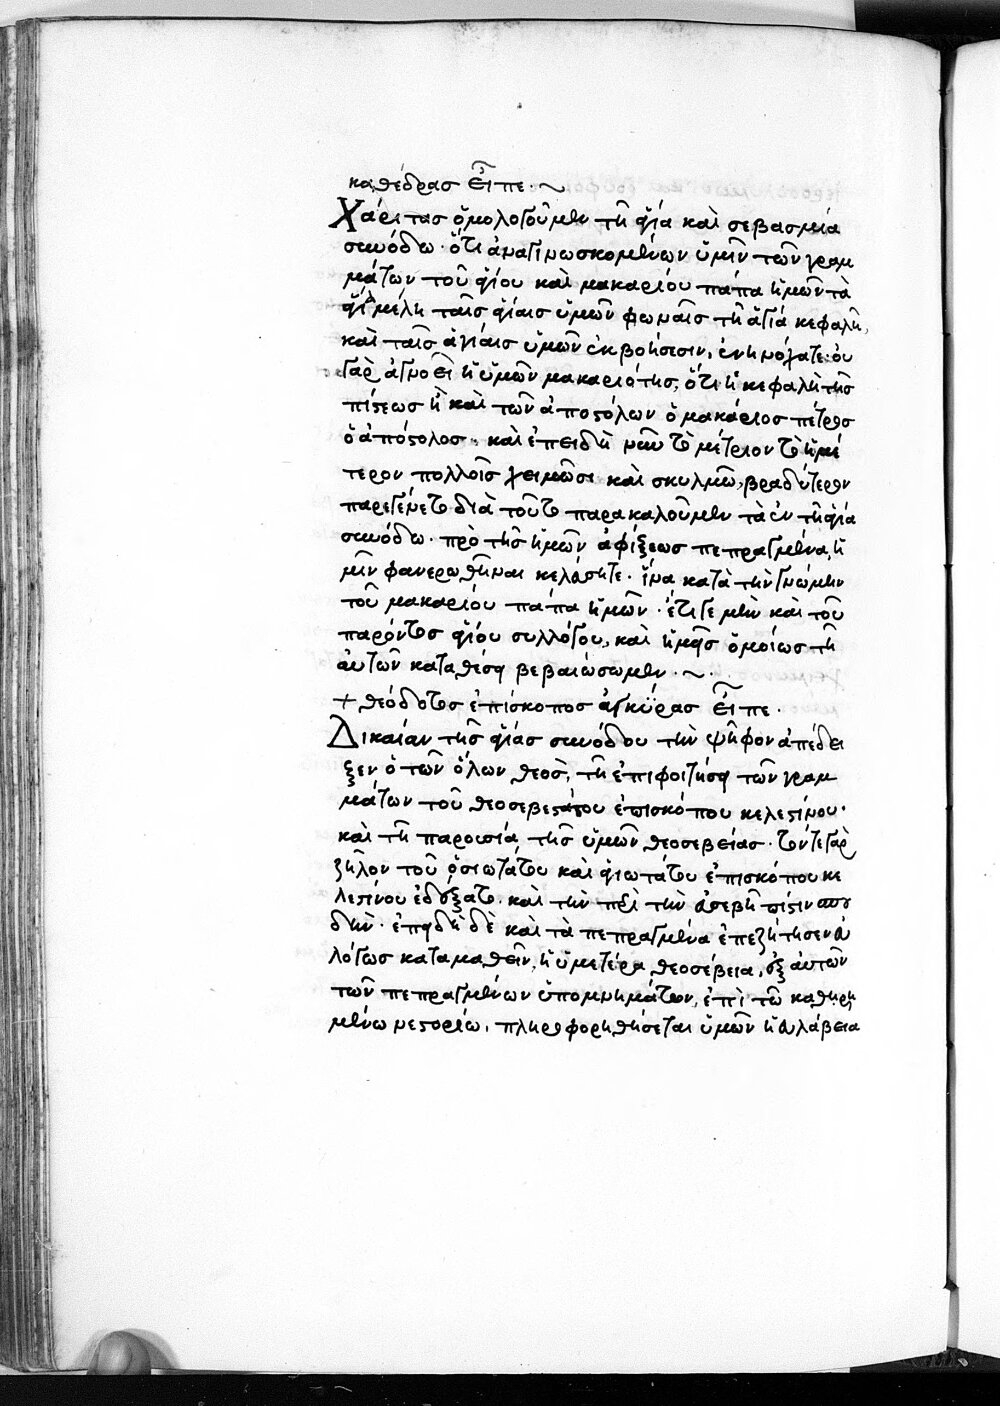 καθέδρας εἶπε·~
Χάριτας ὁμολογοῦμεν τῆ ἁγία καὶ σεβασμία
συνόδω· ὅτι ἀναγινωσκομένων ὑμῖν τῶν γραμ
μάτων τοῦ ἁγίου καὶ μακαρίου πάπα ἡμῶν τὰ
ἅγια μέλη ταῖς ἁγίαις ὑμῶν φωναῖς τῆ ἁγία κεφαλῆ,
καὶ ταῖς ἁγίαις ὑμῶν ἐκβοήσεσιν,
γὰρ ἀγνοεῖ ἡ ὑμῶν μακαριότης, ὅτι ἡ κεφαλὴ τῆς
πίστεως ἢ καὶ τῶν ἀποστόλων ὁ μακάριος πέτρος
ὁ ἀπόστολος· καὶ ἐπειδὴ νῦν τὸ μέτριον τὸ ἡμέ
τερον πολλοῖς χειμῶσι καὶ σκυλμῶ, βραδύτερον
παρεγένετο διὰ τοῦτο παρακαλοῦμεν τὰ ἐν τῆ ἁγία
συνόδω· πρὸ τῆς ἡμῶν ἀφίξεως πεπραγμένα, ἡ
μῖν φανερωθῆναι κελεύσητε· ἵνα κατὰ τὴν γνώμην
τοῦ μακαρίου πάπα ἡμῶν· ἔτι γε μὴν καὶ τοῦ
παρόντος ἁγίου συλλόγου, καὶ ἡμεῖς ὁμοίως τῆ
αὐτῶν καταθέσει βεβαιώσωμεν·~·
+ θεόδοτος ἐπίσκοπος ἀγκύρας εἶπε·
Δικαίαν τῆς ἁγίας συνόδου τὴν ψῆφον ἀπέδει
ξεν ὁ τῶν ὅλων θεὸς, τῆ ἐπιφοιτήσει τῶν γραμ
μάτων τοῦ θεοσεβεστάτου ἐπισκόπου κελεστίνου·
καὶ τῆ παρουσία τῆς ὑμῶν θεοσεβείας· τόν τε γὰρ
ζῆλον τοῦ ὁσιωτάτου καὶ ἁγιωτάτου ἐπισκόπου κε
λεστίνου ἐδείξατε· καὶ τὴν περὶ τὴν εὐσεβῆ πίστιν σπου
δήν· ἐπειδὴ δὲ καὶ τὰ πεπραγμένα ἐπεζήτησεν εὐ
λόγως καταμαθεῖν, ἡ ὑμετέρα θεοσέβεια, ἐξ αὐτῶν
τῶν πεπραγμένων ὑπομνημάτων, ἐπὶ τῶ καθηρη
μένω νεστορίω, πληροφορηθήσεται ὑμῶν ἡ εὐλάβεια